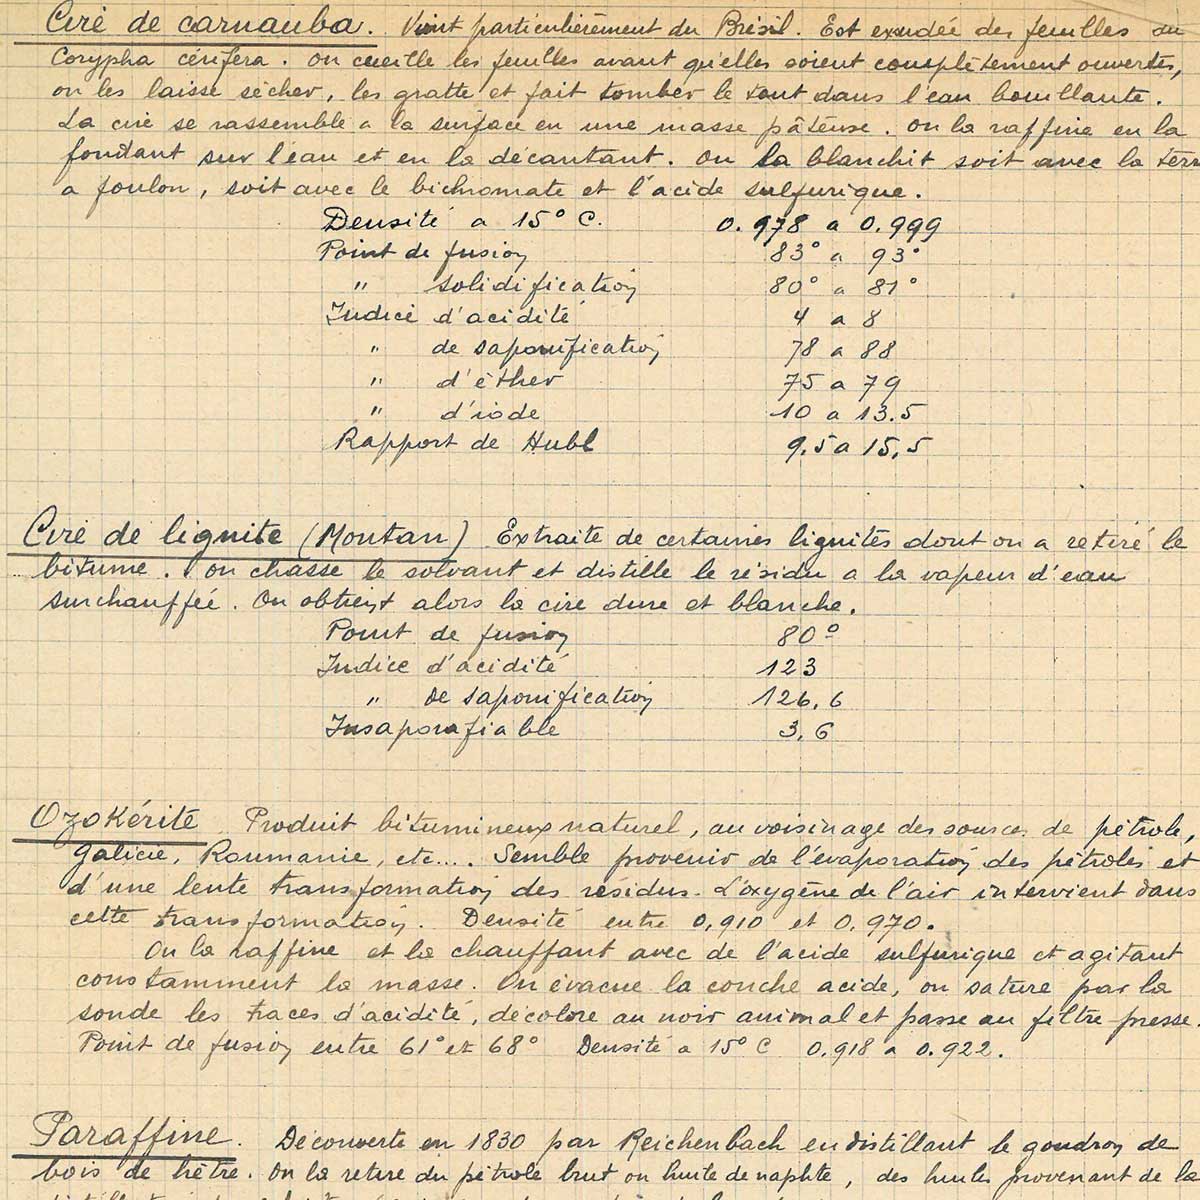 Cire de carnauba. Vient particulièrement du Brésil. Est exsudée des feuilles du
Corypha cérifera. On cueille les feuilles avant qu'elles soient complètement ouvertes,
on les laisse sécher, les gratte et fait tomber le tout dans l'eau bouillante.
La cire se rassemble a la surface en une masse pâteuse. On la raffine en la
fondant sur l'eau et en la décantant. On la blanchit soit avec la terr
a foulon, soit avec le bichromate et l'acide sulfurique.
Densité a 15° C. 0.978 a 0.999
Point de fusion 83° a 93°
" solidification 80° a 81°
Indice d'acidité 4 a 8
" de saponification 78 a 88
" d'éther 75 a 79
" d'iode 10 a 13.5
Rapport de Hubl 9.5 a 15,5
Cire de lignite (Montan) Extraite de certaines lignites dont on a retiré le
bitume. On chasse le solvant et distille le résidu a la vapeur d'eau
surchauffée. On obtient alors la cire dure et blanche.
Point de fusion 80°
Indice d'acidité 123
" de saponification 126,6
Insaponafiable 3,6
Ozokérite Produit bitumineux naturel, au voisinage des sources de pétrole,
Galicie, Roumanie, etc.... Semble provenir de l'évaporation des pétroles et
d'une lente transformation des résidus. L'oxygène de l'air intervient dans
cette transformation. Densité entre 0,910 et 0,970.
On la raffine et la chauffant avec de l'acide sulfurique et agitant
constamment la masse. On évacue la couche acide, on sature par la
sonde les traces d'acidité, décolore au noir animal et passe au filtre-presse.
Point de fusion entre 61° et 68° Densité a 15° C 0.918 a 0.922.
Paraffine. Découverte en 1830 par Reichenbach en distillant le goudron de
bois de hêtre. On la retire du pétrole brut ou huile de naphte, des huiles provenant de la